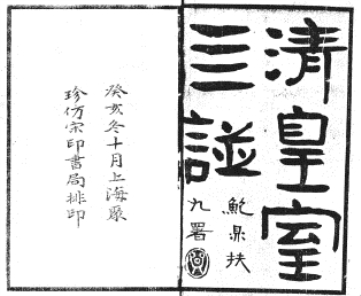 清皇室
三諡
鮑鼎扶
九署
癸亥冬十月上海聚
珍仿宋印書局排印